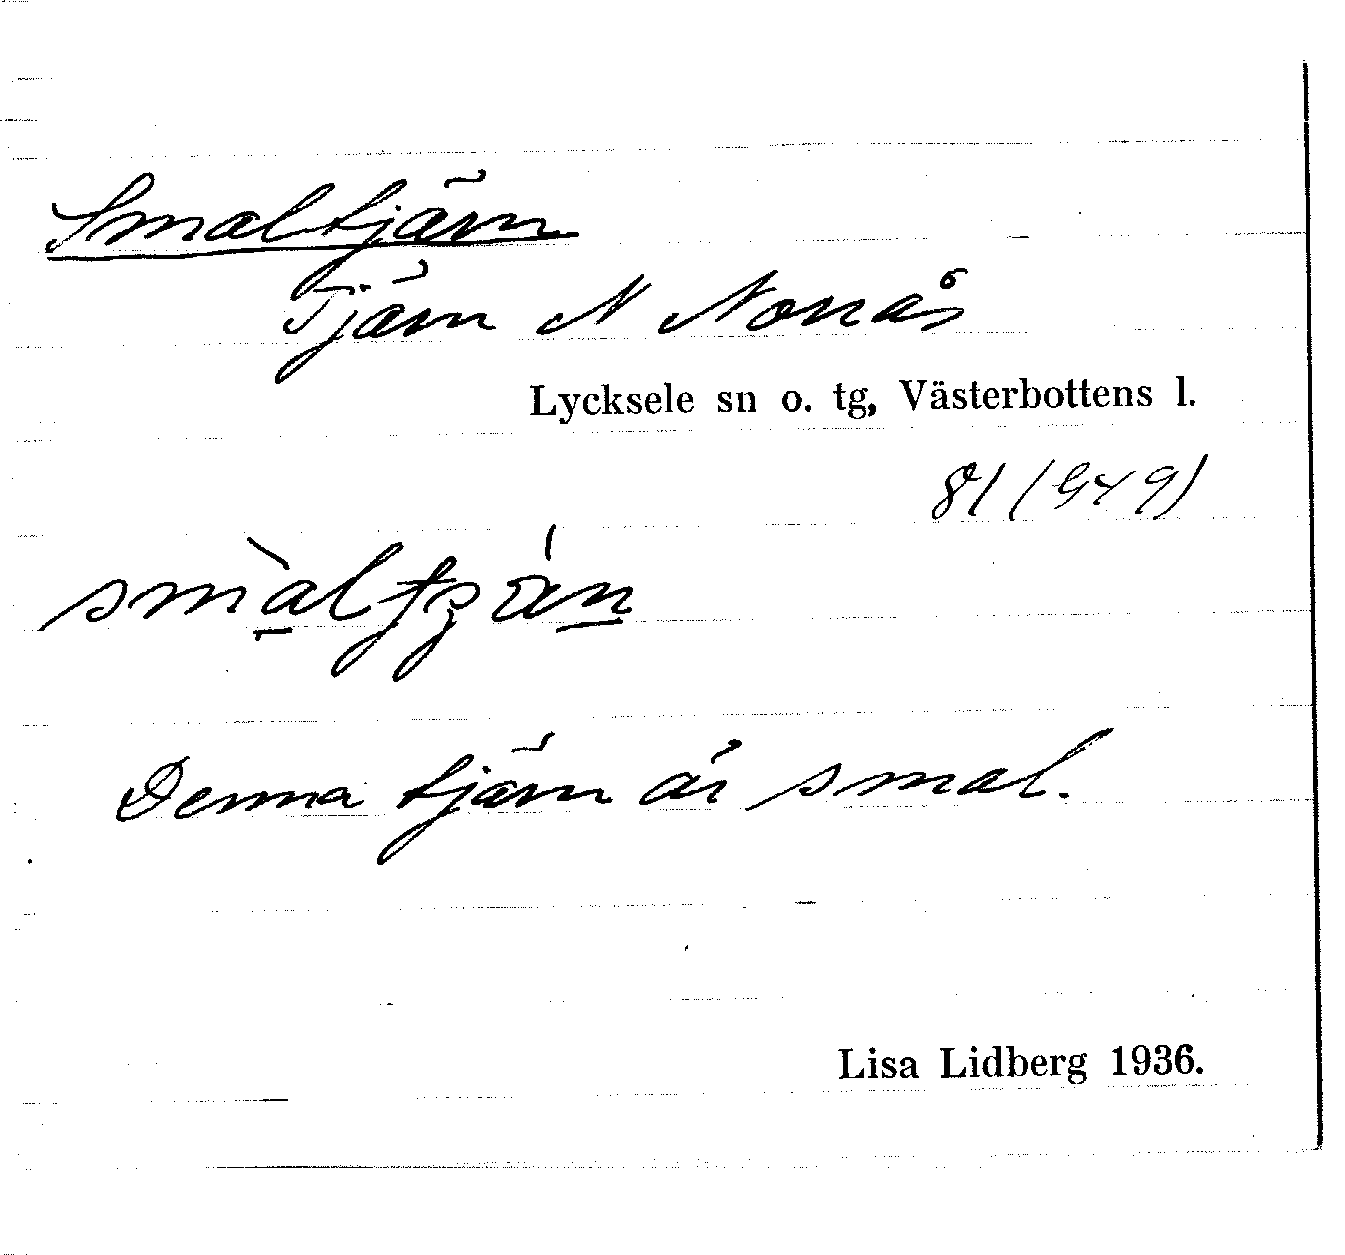 Smaltjärn
Tjärn N Nonås
Lycksele sn o. tg, Västerbottens l.
81 (949)
Denna tjärn är smal.
Lisa Lidberg 1936.